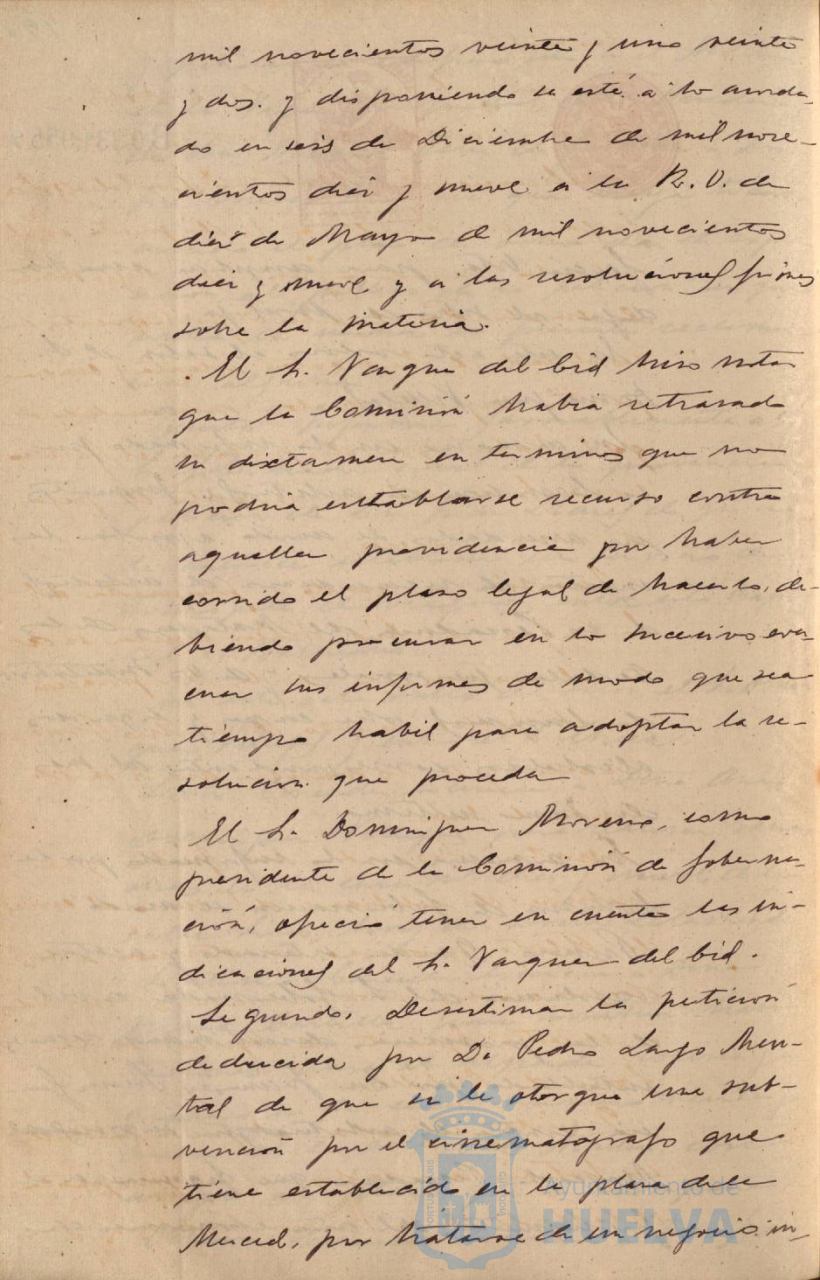 mil novecientos veinte y uno veinte
y dos. y disponiendo se esté a lo acorda-
do en seis de Diciembre de mil nove-
cientos diez y nueve a la R. O. de
diez de Mayo de mil novecientos
diez y nueve y a las resoluciones firmes
sobre la materia.
El Sr. Vazquez del Cid hizo notar
que la Comisión habia retrasado
su dictamen en terminos que no
podria entablarse recurso contra
aquella providencia por haber
corrido el plazo legal de hacerlo, de-
biendo procurar en lo sucesivo eva-
cuar sus informes de modo que sea
tiempo habil para adoptar la re-
solucion que proceda
El Sr. Dominguez Moreno, como
presidente de la Comisión de Goberna-
ción, ofreció tener en cuenta las in-
dicaciones del Sr. Vazquez del Cid.
Segundo. Desestimar la petición
deducida por D. Pedro Largo
de que se le otorgue una sub-
vención por el cinematógrafo que
tiene establecido en la plaza de la
Merced, por tratarse de un negocio in-
Ayuntamiento de
HUELVA